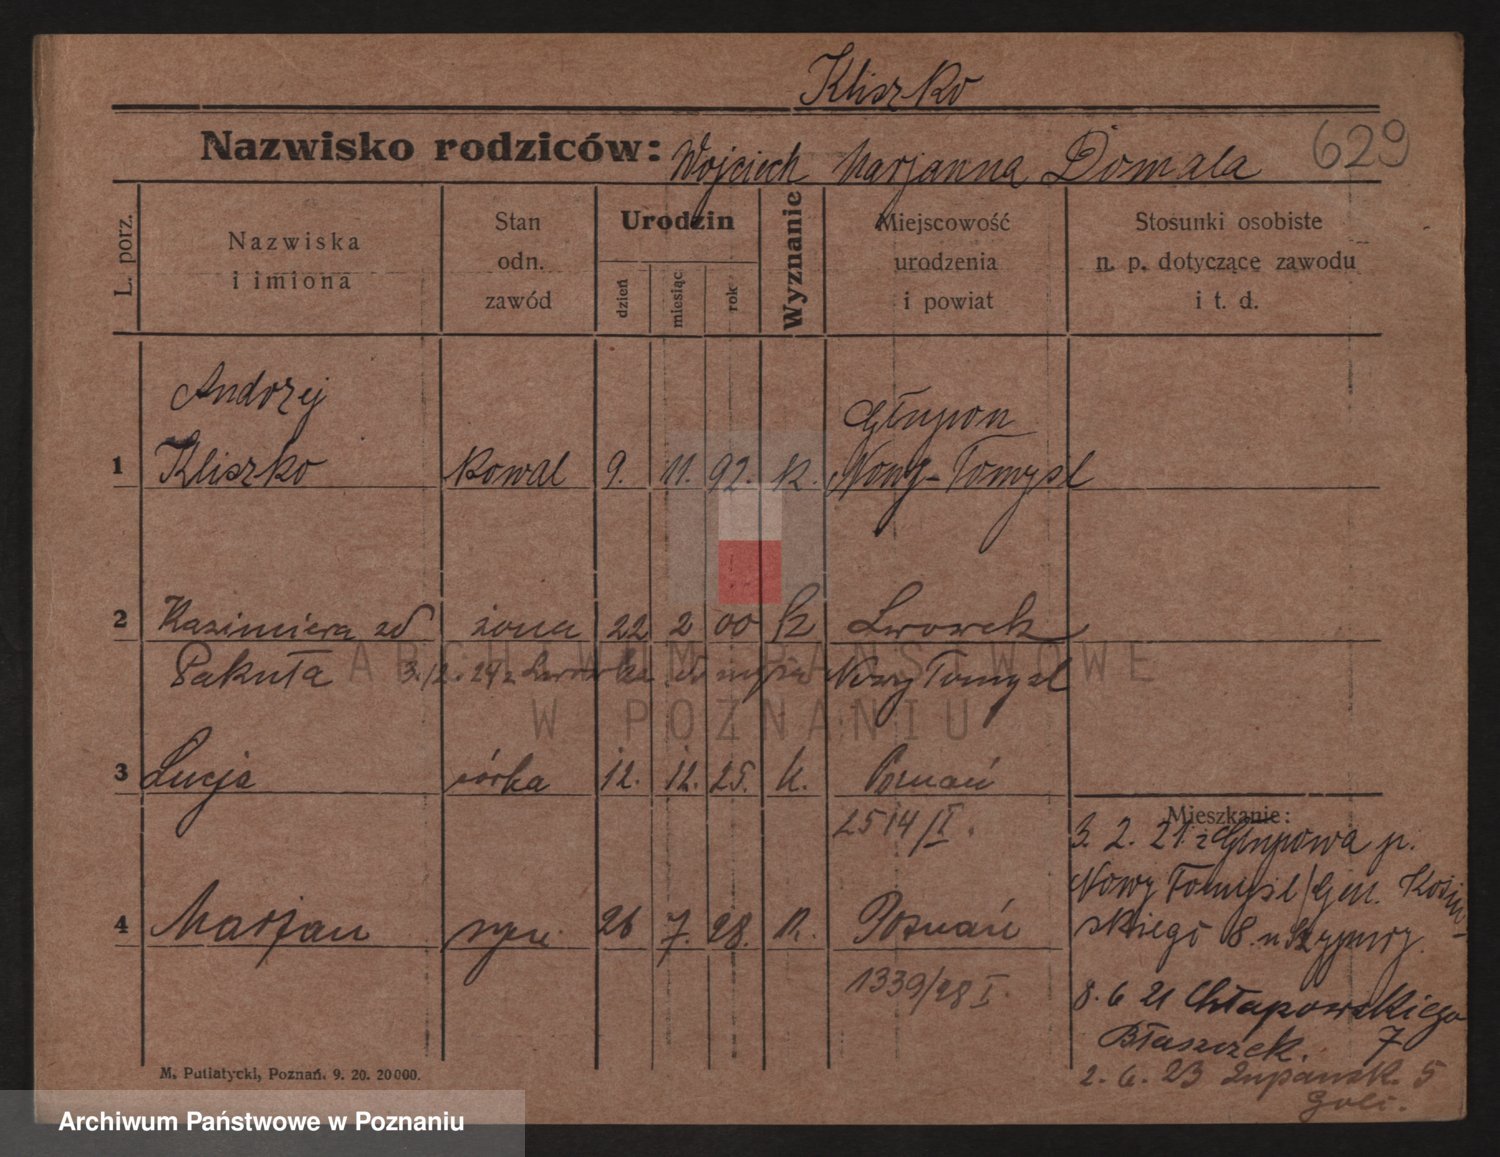 Kliszko
Nazwisko rodziców: Wojciech Marjanna Domala 629
L. porz.
Nazwiska i imiona
Stan odn. zawód
Urodzin
dzień
miesiąc
rok
Wyznanie
Miejscowość urodzenia i powiat
Stosunki osobiste n. p. dotyczące zawodu i t. d.
Andrzej
Głupon
1 Kliszko kowal 9. 11. 92. k. Nowy-Tomyśl
2 Kazimiera zd żona 22 2 00 k Lwowek
Pakuła 3.12.24 z Lwówka Nowy Tomyśl
3 Lucja córka 12. 12. 25. k. Poznań
2514/I.
4 Marjan syn 26 7. 28. k. Poznań
1339/28 I.
Mieszkanie:
3. 2. 21 z Głupowa p.
Nowy Tomyśl/Gen. Kosiń-
skiego 8. u Szypury.
8. 6 21 Chłapowskiego
Błaszczek. 7
2. 6. 23 Łupańsk. 5
M. Putiatycki, Poznań. 9. 20. 20000.
ARCHIWUM PAŃSTWOWE
W POZNANIU
Archiwum Państwowe w Poznaniu